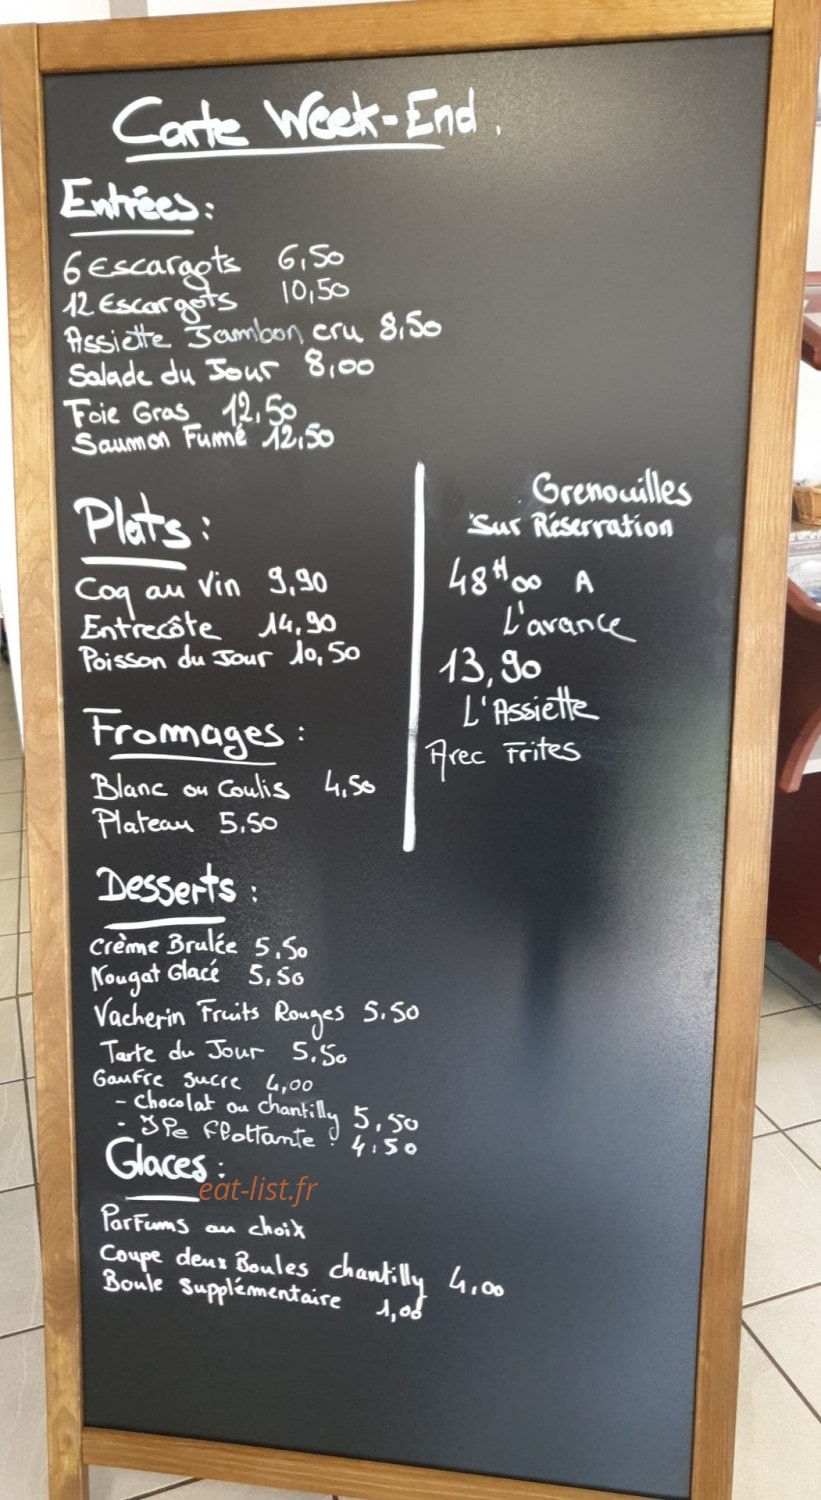 Carte Week-End.
Entrées:
6 Escargots 6,50
12 Escargots 10,50
Assiette Jambon cru 8,50
Salade du Jour 8,00
Foie Gras 12,50
Saumon Fumé 12,50
Plats:
Coq au Vin 9,90
Entrecôte 14,90
Poisson du Jour 10,50
Fromages:
Blanc ou Coulis 4,50
Plateau 5,50
Grenouilles
Sur Réservation
48H00 A
L'avance
13,90
L'Assiette
Avec Frites
Desserts:
Crème Brulée 5,50
Nougat Glacé 5,50
Vacherin Fruits Rouges 5.50
Tarte du Jour 5.50
Gaufre sucre 4,00
- Chocolat ou chantilly 5,50
- Ile flottante: 4.50
Glaces:
eat-list.fr
Parfums au choix
Coupe deux Boules chantilly 4,00
Boule Supplémentaire 1,00